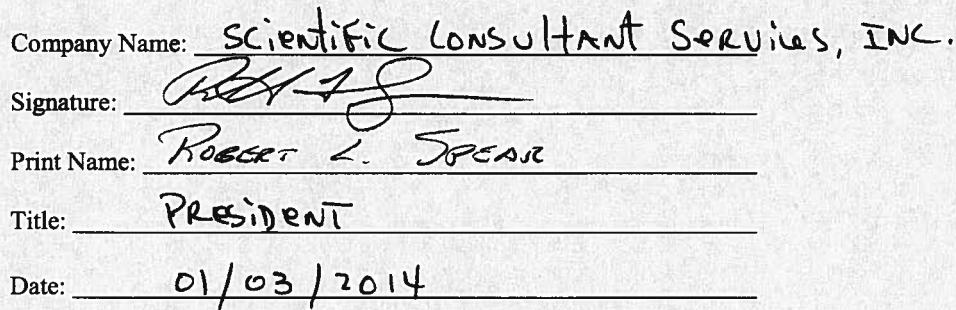 Company Name: Scientific Consultant Services, Inc.
Signature:
Print Name: Robert L. Spear
Title: President
Date: 01/03/2014